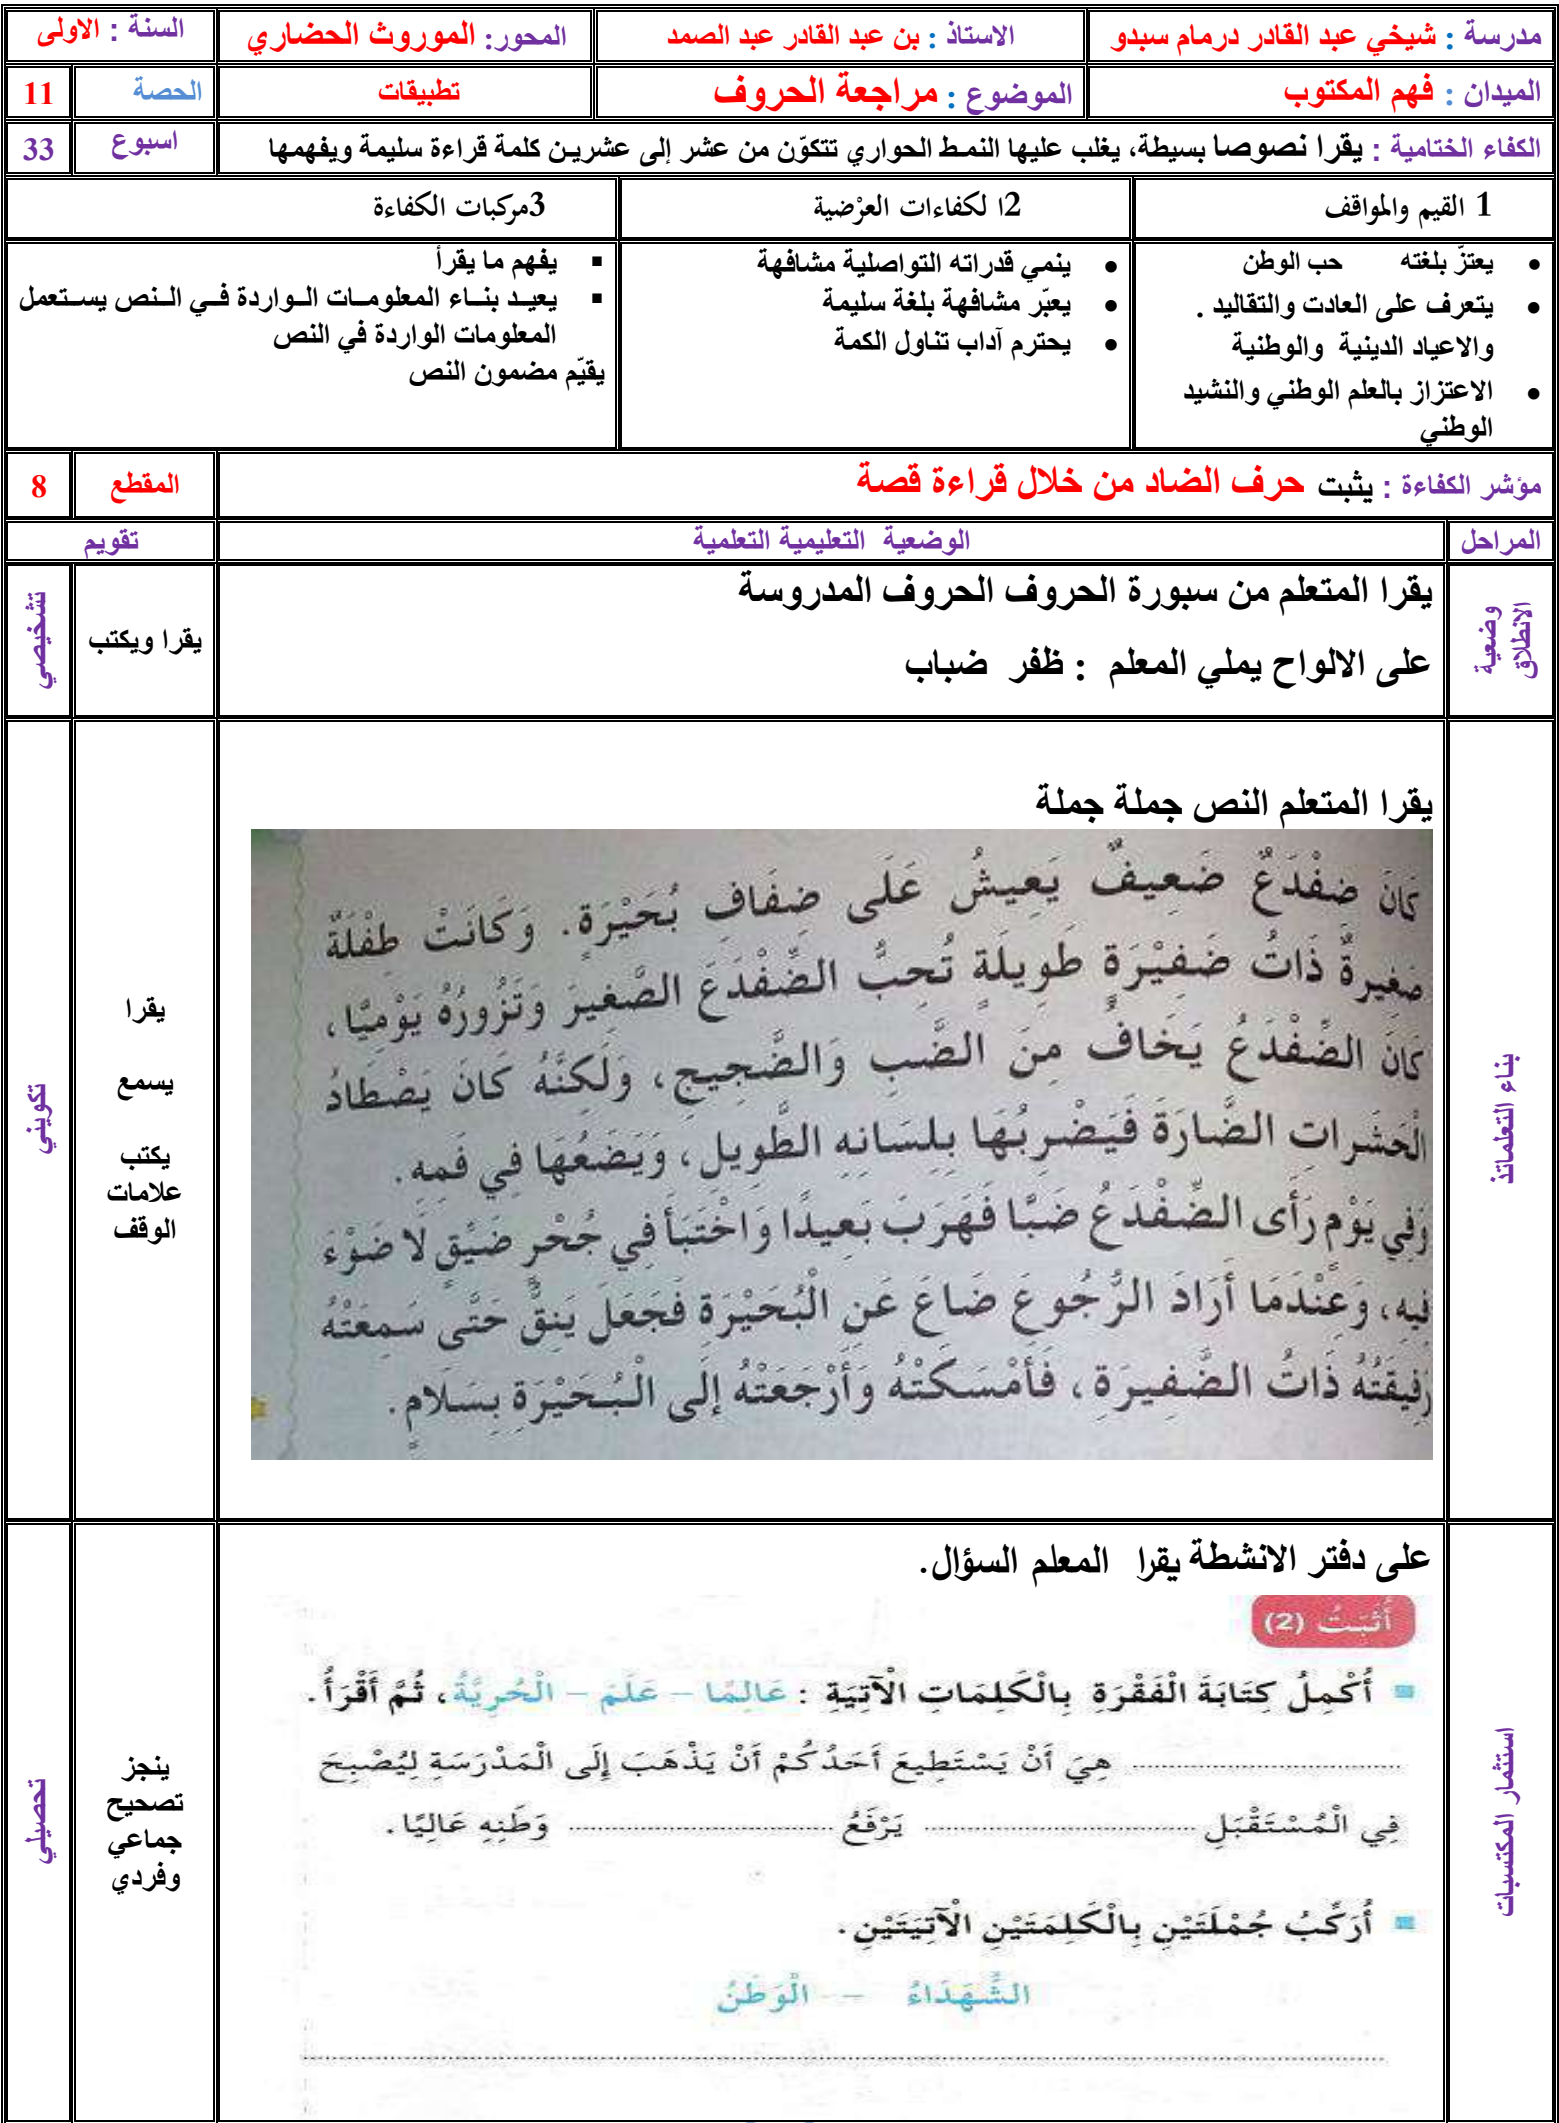 مدرسة : شيخي عبد القادر درمام سبدو
الاستاذ : بن عبد القادر عبد الصمد
المحور: الموروث الحضاري
السنة : الاولى
الميدان : فهم المكتوب
الموضوع : مراجعة الحروف
تطبيقات
الحصة
11
الكفاء الختامية : يقرا نصوصا بسيطة، يغلب عليها النمط الحواري تتكوّن من عشر إلى عشرين كلمة قراءة سليمة ويفهمها
اسبوع
33
1 القيم والمواقف
2ا لكفاءات العرْضية
3مركبات الكفاءة
• يعتزّ بلغته حب الوطن
• يتعرف على العادت والتقاليد .
والاعياد الدينية والوطنية
• الاعتزاز بالعلم الوطني والنشيد
الوطني
• ينمي قدراته التواصلية مشافهة
• يعبّر مشافهة بلغة سليمة
• يحترم آداب تناول الكمة
▪ يفهم ما يقرأ
▪ يعيد بناء المعلومات الواردة في النص يستعمل
المعلومات الواردة في النص
يقيّم مضمون النص
مؤشر الكفاءة : يثبت حرف الضاد من خلال قراءة قصة
المقطع
8
المراحل
الوضعية التعليمية التعلمية
تقويم
وضعية
الانطلاق
يقرا المتعلم من سبورة الحروف الحروف المدروسة
على الالواح يملي المعلم : ظفر ضباب
يقرا ويكتب
تشخيصي
بناء التعلماتذ
يقرا المتعلم النص جملة جملة
كَانَ ضِفْدَعٌ ضَعِيفٌ يَعِيشُ عَلَى ضِفَافِ بُحَيْرَةٍ. وَكَانَتْ طِفْلَةٌ
صَغِيرةٌ ذَاتُ ضَفِيْرَةٍ طَوِيلَةٍ تُحِبُّ الضِّفْدَعَ الصَّغِيرَ وَتَزُورُهُ يَوْمِيًّا،
كَانَ الضِّفْدَعُ يَخَافُ مِنَ الضَّبِ وَالضَّجِيجِ، وَلَكِنَّهُ كَانَ يَصْطَادُ
الْحَشَرَاتِ الضَّارَةَ فَيَضْرِبُهَا بِلِسَانِهِ الطَّوِيلِ، وَيَضَعُهَا فِي فَمِهِ.
وَفِي يَوْمٍ رَأَى الضِّفْدَعُ ضَبًّا فَهَرَبَ بَعِيدًا وَاخْتَبَأَ فِي جُحْرٍ ضَيِّقٍ لَا ضَوْءَ
فِيهِ، وَعِنْدَمَا أَرَادَ الرُّجُوعَ ضَاعَ عَنِ الْبُحَيْرَةِ فَجَعَلَ يَنِقُّ حَتَّى سَمِعَتْهُ
رَفِيقَتُهُ ذَاتُ الضَّفِيرَةِ، فَأَمْسَكَتْهُ وَأَرْجَعَتْهُ إِلَى الْبُحَيْرَةِ بِسَلَامٍ.
يقرا
يسمع
يكتب
علامات
الوقف
تكويني
استثمار المكتسبات
على دفتر الانشطة يقرا المعلم السؤال.
أُثَبِّتُ (2)
أُكْمِلُ كِتَابَةَ الْفَقْرَةِ بِالْكَلِمَاتِ الْآتِيَةِ : عَالِمًا – عَلَمَ – الْحُرِيَّةُ، ثُمَّ أَقْرَأُ.
........ هِيَ أَنْ يَسْتَطِيعَ أَحَدُكُمْ أَنْ يَذْهَبَ إِلَى الْمَدْرَسَةِ لِيُصْبِحَ
فِي الْمُسْتَقْبَلِ ........ يَرْفَعُ ........ وَطَنِهِ عَالِيًا.
أُرَكِّبُ جُمْلَتَيْنِ بِالْكَلِمَتَيْنِ الْآتِيَتَيْنِ.
الشُّهَدَاءُ – الْوَطَنُ
ينجز
تصحيح
جماعي
وفردي
تحصيلي